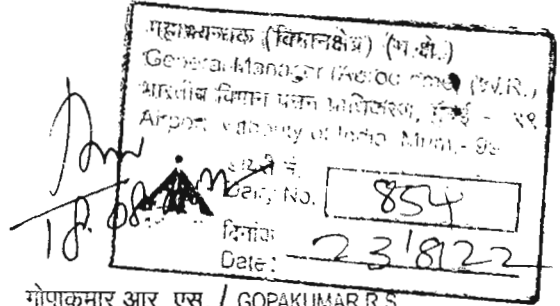 महाप्रबन्धक (विमानक्षेत्र) (प.क्षे.)
General Manager (Aerodrome) (W.R.)
भारतीय विमान पत्तन प्राधिकरण, मुंबई - ९९
Airport Authority of India, Mum.- 99
डायरी नं.
Dairy No. 854
18.08.
दिनांक
Date: 23/8/22
गोपाकुमार आर. एस. / GOPAKUMAR R.S.